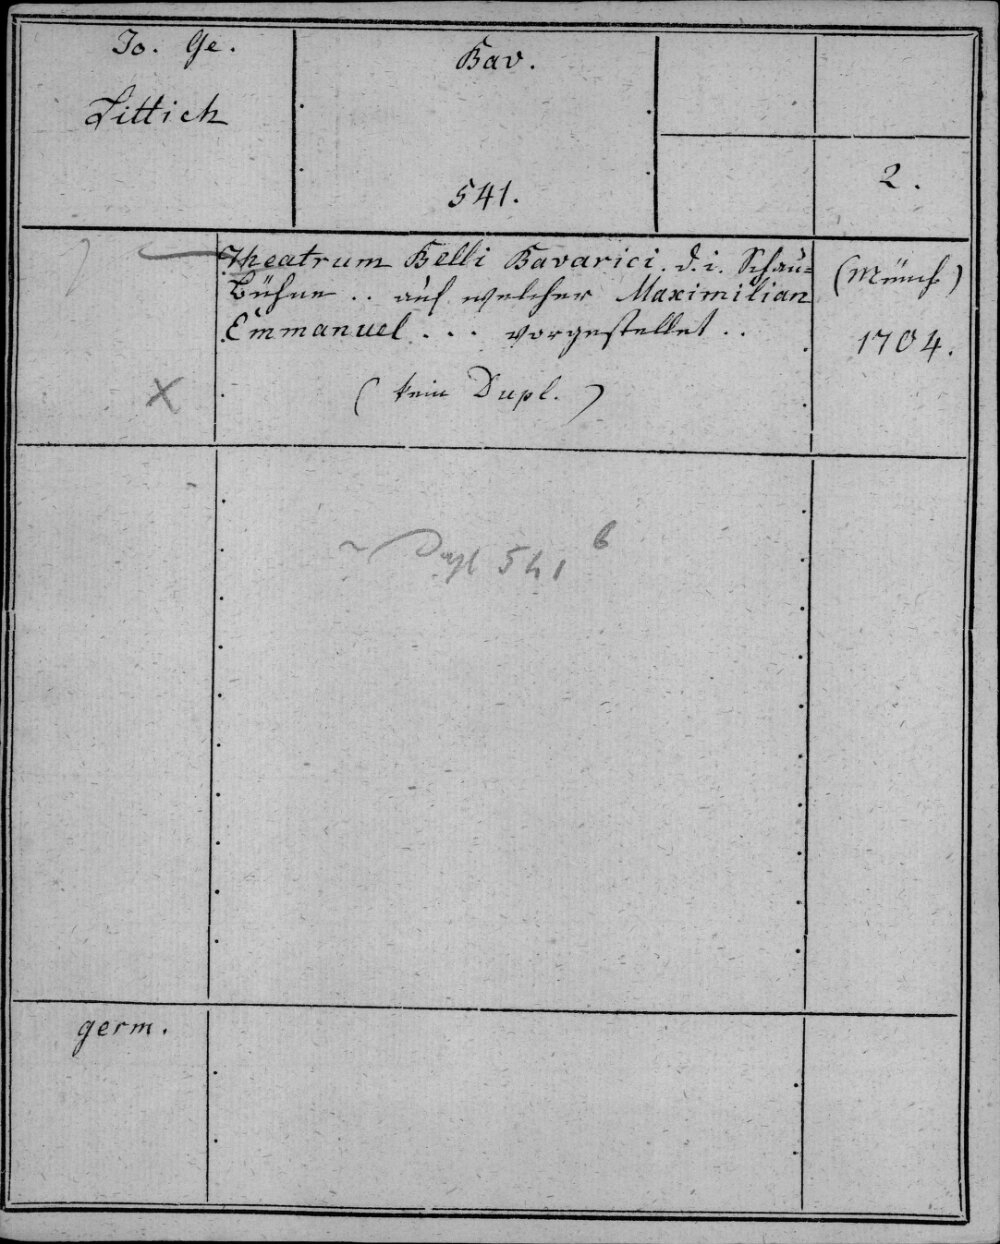 Jo. Ge.
Littich
Bav.
541.
2.
Theatrum Belli Bavarici. d. i. Schau=
Bühne .. auf welcher Maximilian
Emmanuel ... vorgestellet ..
( kein Dupl. )
(Münch)
1704.
X
Dupl 541 b
germ.